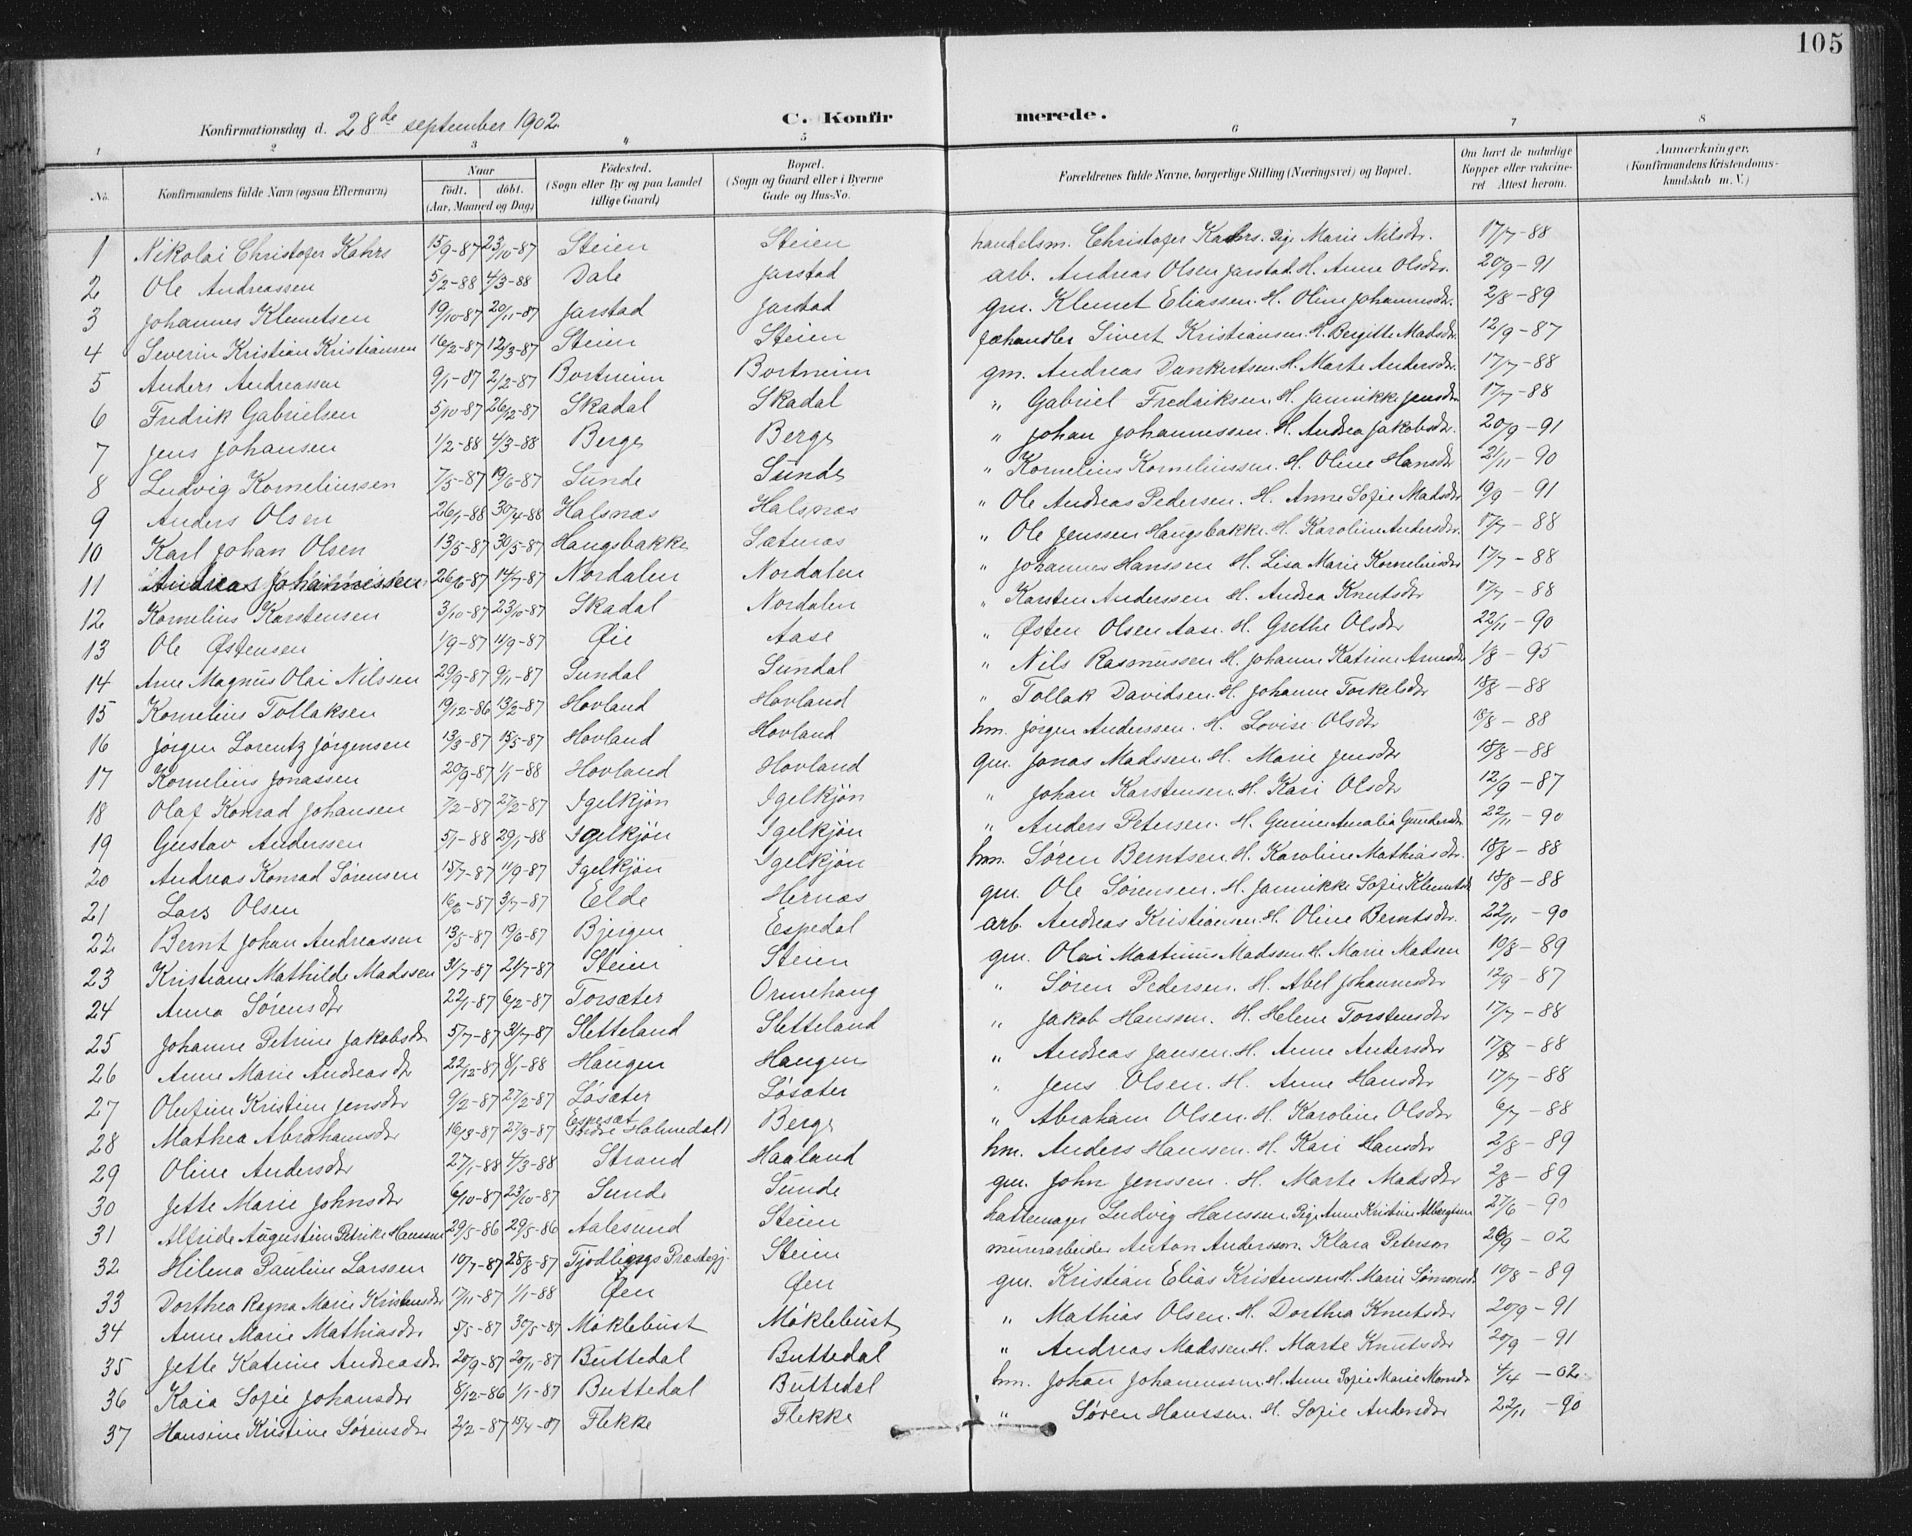 105
Konfirmationsdag d. 28de september 1902. C. Konfirmerede.
1 2 3 4 5 6 7 8
No. Konfirmandens fulde Navn (ogsaa Efternavn) Naar født, døbt. (Aar, Maaned og Dag) Fødested. (Sogn eller By og paa Landet tillige Gaard) Bopæl. (Sogn og Gaard eller i Byerne Gade og Hus-No. Forældrenes fulde Navne, borgerlige Stilling (Næringsvei) og Bopæl. Om havt de naturlige Kopper eller vakcineret Attest herom. Anmærkninger. (Konfirmandens Kristendomskundskab m. V.)
1 Nikolai Christofer Kahrs 15/9-87 23/10-87 Steien Steien handelsm. Christofer Kahrs. Pige Marie Nilsdr. 17/7-88
2 Ole Andreassen 5/2-88 4/3-88 Dale Jarstad arb. Andreas Olsen Jarstad. H. Anne Olsdr. 20/9-91
3 Johannes Klemetsen 19/10-87 20/11-87 Jarstad Jarstad gm. Klemet Eliassen. H. Oline Johannesdr. 2/8-89
4 Severin Kristian Kristiansen 16/2-87 12/3-87 Steien Steien fæhandler Sivert Kristiansen. H. Bergitte Madsdr. 12/9-87
5 Anders Andreassen 9/1-87 2/2-87 Bortneim Bortneim gm. Andreas Dankertsen. H. Marte Andersdr. 17/7-88
6 Fredrik Gabrielsen 5/10-87 26/12-87 Skadal Skadal " Gabriel Fredriksen. H. Jannikke Jensdr. 17/7-88
7 Jens Johansen 1/2-88 4/3-88 Berge Berge " Johan Johannessen. H. Andrea Jakobsdr. 20/9-91
8 Ludvig Korneliussen 7/5-87 19/6-87 Sunde Sunde " Kornelius Korneliussen. H. Oline Hansdr. 2/11-90
9 Anders Olsen 26/1-88 30/4-88 Halsnæs Halsnæs " Ole Andreas Pedersen. H. Anne Sofie Madsdr. 19/9-91
10 Karl Johan Olsen 13/5-87 30/5-87 Haugsbakke Sætenæs " Ole Jenssen Haugsbakke. H. Karoline Andersdr. 17/7-88
11 Andreas Johannessen 26/6-87 14/7-87 Nordalen Nordalen " Johannes Hanssen H. Lisa Marie Korneliusdr. 17/7-88
12 Kornelius Karstensen 3/10-87 23/10-87 Skadal Nordalen " Karsten Anderssen H. Andrea Knutsdr. 17/7-88
13 Ole Østensen 1/9-87 11/9-87 Øie Aase " Østen Olsen Aase. H. Grethe Olsdr. 22/11-90
14 Arne Magnus Olai Nilssen 29/9-87 9/11-87 Sundal Sundal " Nils Rasmussen H. Johanne Katrine Arnesdr. 1/8-95
15 Kornelius Tollaksen 19/12-86 13/2-87 Hovland Hovland " Tollak Davidsen. H. Johanne Torkelsdr. 18/8-88
16 Jørgen Lorentz Jørgensen 13/3-87 15/5-87 Hovland Hovland hm. Jørgen Anderssen. H. Lovise Olsdr. 18/8-88
17 Kornelius Jonassen 20/9-87 1/1-88 Hovland Hovland gm. Jonas Madssen. H. Marie Jensdr. 18/8-88
18 Olaf Konrad Johansen 7/2-87 27/2-87 Igelkjøn Igelkjøn " Johan Karstensen. H. Kari Olsdr. 12/9-87
19 Gustav Anderssen 5/1-88 29/1-88 Igelkjøn Igelkjøn " Anders Petersen. H. Gurine Amalia Gundersdr. 22/11-90
20 Andreas Konrad Sørensen 15/7-87 11/9-87 Igelkjøn Igelkjøn hm. Søren Berntsen. H. Karoline Mathiasdr. 18/8-88
21 Lars Olsen 16/6-87 3/7-87 Elde Hernæs gm. Ole Sørensen. H. Jannikke Sofie Klemetsdr. 18/8-88
22 Bernt Johan Andreassen 13/5-87 19/6-87 Bjergen Espedal arb. Andreas Kristiansen. H. Oline Berntsdr. 22/11-90
23 Kristiane Mathilde Madssen 31/7-87 21/7-87 Steien Steien gm. Olai Martinus Madssen. H. Marie Madsen 10/8-89
24 Anna Sørensdr. 22/1-87 6/2-87 Torsæter Ormehaug " Søren Pedersen. H. Abel Johannesdr. 12/9-87
25 Johanne Petrine Jakobsdr. 5/7-87 31/7-87 Sletteland Sletteland " Jakob Hanssen. H. Helene Torstensdr. 17/7-88
26 Anne Marie Andreasdr 22/12-87 8/1-88 Haugen Haugen " Andreas Jansen. H. Anne Andersdr. 17/8-88
27 Olufine Kristine Jensdr. 9/2-87 27/2-87 Løsæter Løsæter " Jens Olsen. H. Anne Hansdr. 17/7-88
28 Mathea Abrahamsdr. 16/3-87 27/3-87 (Indre Holmedal) Berge " Abraham Olsen. H. Karoline Olsdr. 6/7-88
29 Oline Andersdr. 27/1-88 4/3-88 Strand Haaland hm. Anders Hanssen. H. Kari Hansdr. 2/8-89
30 Jette Marie Johnsdr. 6/10-87 23/10-87 Sunde Sunde gm. John Jenssen. H. Marte Madsdr. 2/8-89
31 Alfride Augustine Petrike Hanssen 29/5-86 29/5-86 Aalesund Steien hattemager Ludvig Hanssen. Pige Anne Kristine Albregtsen 27/6-90
32 Hilena Pauline Larssen 10/7-87 28/8-87 Tjødlings Præstegj. Steien murerarbeider Anton Andersson. Klara Peterson 26/9-02
33 Dorthea Ragna Marie Kristensdr 17/11-87 1/1-88 Øen Øen gm. Kristian Elias Kristensen H. Marie Simonsd. 10/8-89
34 Anne Marie Mathiasdr. 5/5-87 30/5-87 Møklebust Møklebust " Mathias Olsen. H. Dorthea Knutsdr. 20/9-91
35 Jette Katrine Andreasdr. 20/9-87 20/11-87 Buttedal Buttedal " Andreas Madssen. H. Marte Knutsdr. 20/9-91
36 Kaia Sofie Johansdr. 8/12-86 1/1-87 Buttedal Buttedal hm. Johan Johannessen. H. Anne Sofie Marie Monsdr. 4/4-02.
37 Hansine Kristine Sørensdr. 2/2-87 15/4-87 Flekke Flekke " Søren Hanssen. H. Sofie Andersdr. 22/11-90